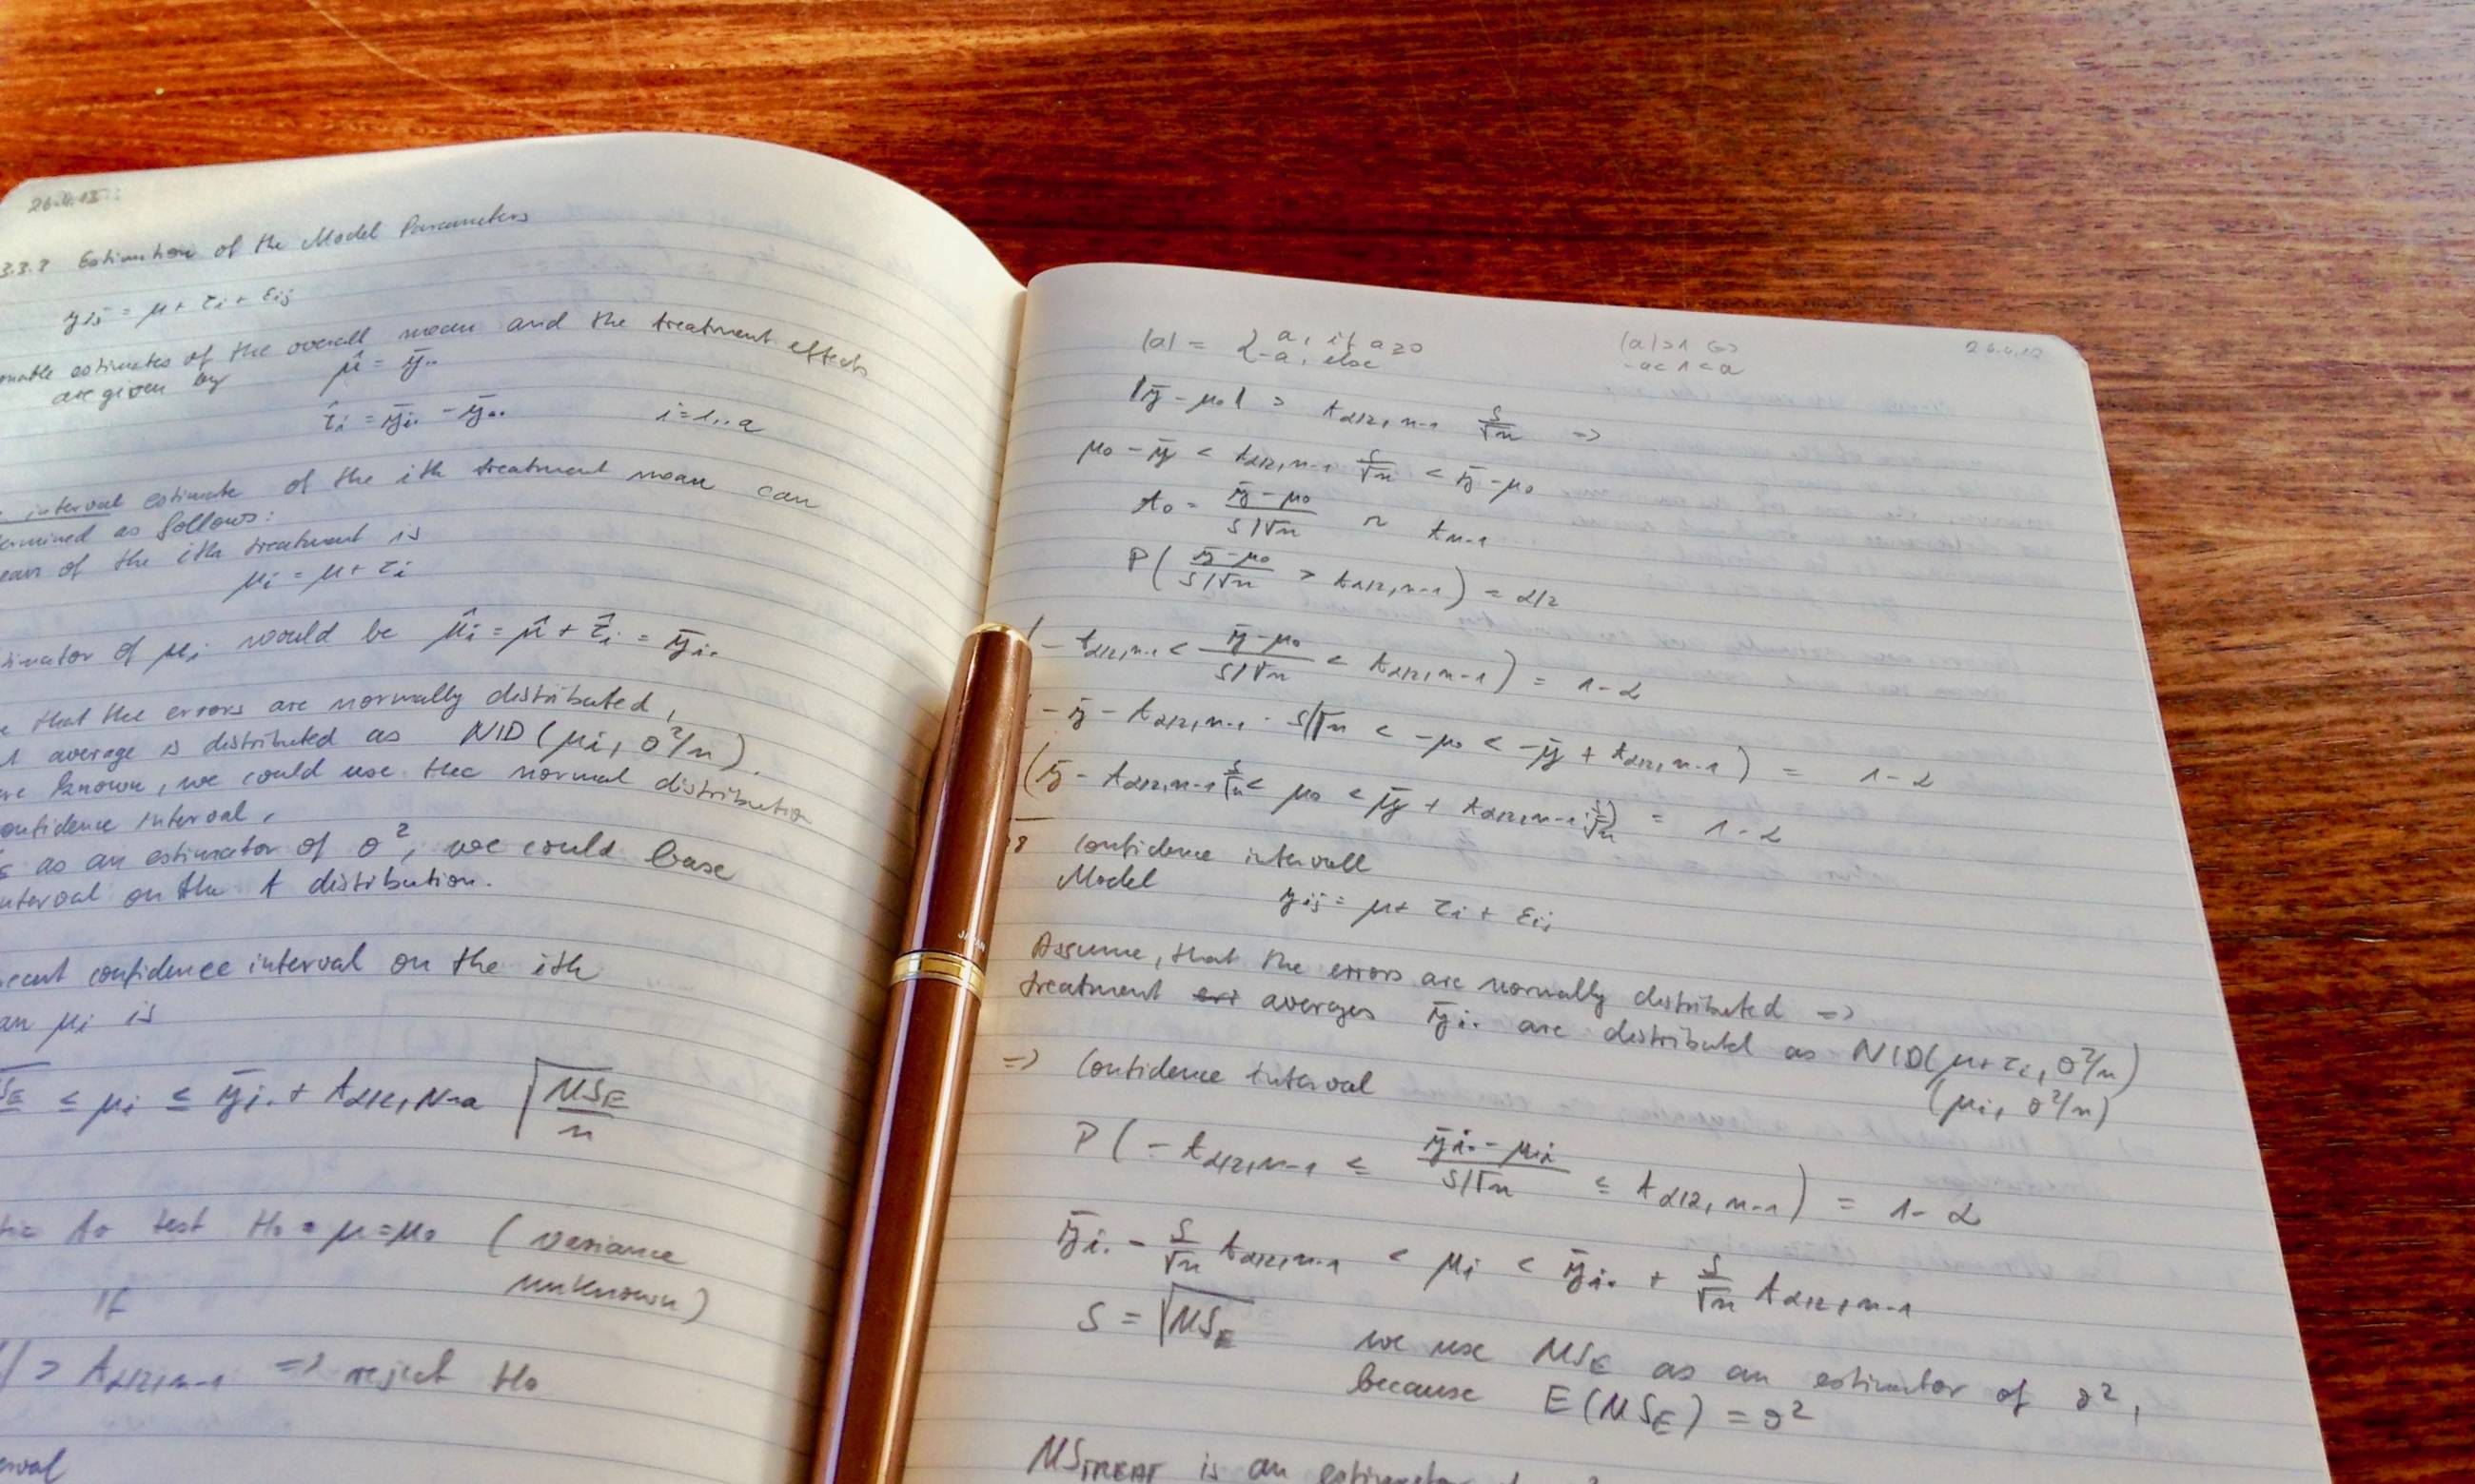 26.4.13
3.3.3 Estimation of the Model Parameters
yij = μ + τi + εij
estimates of the overall mean and the treatment effects
are given by μ̂ = ȳ..
τ̂i = ȳi. - ȳ.. i=1..a
interval estimate of the ith treatment mean can
as follows:
of the ith treatment is
μi = μ + τi
of μi would be μ̂i = μ̂ + τ̂i = ȳi.
that the errors are normally distributed,
average is distributed as NID(μi, σ²/n).
known, we could use the normal distribution
confidence interval,
as an estimator of σ², we could base
interval on the t distribution.
confidence interval on the ith
μi is
≤ μi ≤ ȳi. + tα/2, N-a √(MSE/n)
to test H0: μ=μ0 (variance
unknown)
if
> tα/2,n-1 => reject H0
26.4.13
|a| = { a, if a≥0
-a, else
|a|>1 <=>
-a<1<a
|ȳ-μ0| > tα/2,n-1 S/√n =>
μ0 - ȳ < tα/2,n-1 S/√n < ȳ-μ0
t0 = (ȳ-μ0)/(S/√n) ~ tn-1
P( (ȳ-μ0)/(S/√n) > tα/2,n-1 ) = α/2
-tα/2,n-1 < (ȳ-μ0)/(S/√n) < tα/2,n-1 ) = 1-α
-ȳ - tα/2,n-1 · S/√n < -μ0 < -ȳ + tα/2,n-1 ) = 1-α
(ȳ - tα/2,n-1 S/√n < μ0 < ȳ + tα/2,n-1 · S/√n) = 1-α
confidence intervall
Model
yij = μ + τi + εij
Assume, that the errors are normally distributed =>
treatment averages ȳi. are distributed as NID(μ+τi, σ²/n)
(μi, σ²/n)
=> Confidence interval
P( -tα/2,n-1 ≤ (ȳi.-μi)/(S/√n) ≤ tα/2,n-1 ) = 1-α
ȳi. - S/√n tα/2,n-1 < μi < ȳi. + S/√n tα/2,n-1
S = √MSE we use MSE as an estimator of σ²,
because E(MSE) = σ²
MSTREAT is an estimator
JAPAN